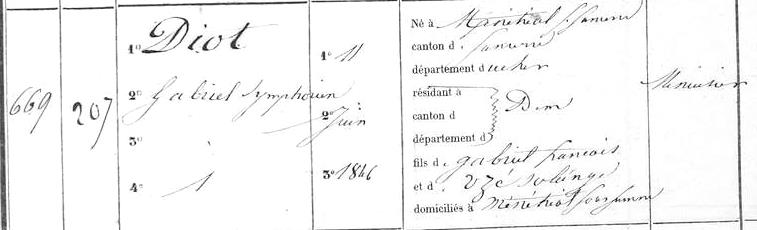 669 207
1° Diot
2° Gabriel Symphorien
3°
4° 1
1° 11
2° Juin
3° 1846
Né à Ménétréol s/ Sancerre
canton d. Sancerre
département du cher
résidant à
canton d Dm
département d
fils d. gabriel francois
et d. Uzé solange
domiciliés à Ménétréol sous Sancerre
Menuisier